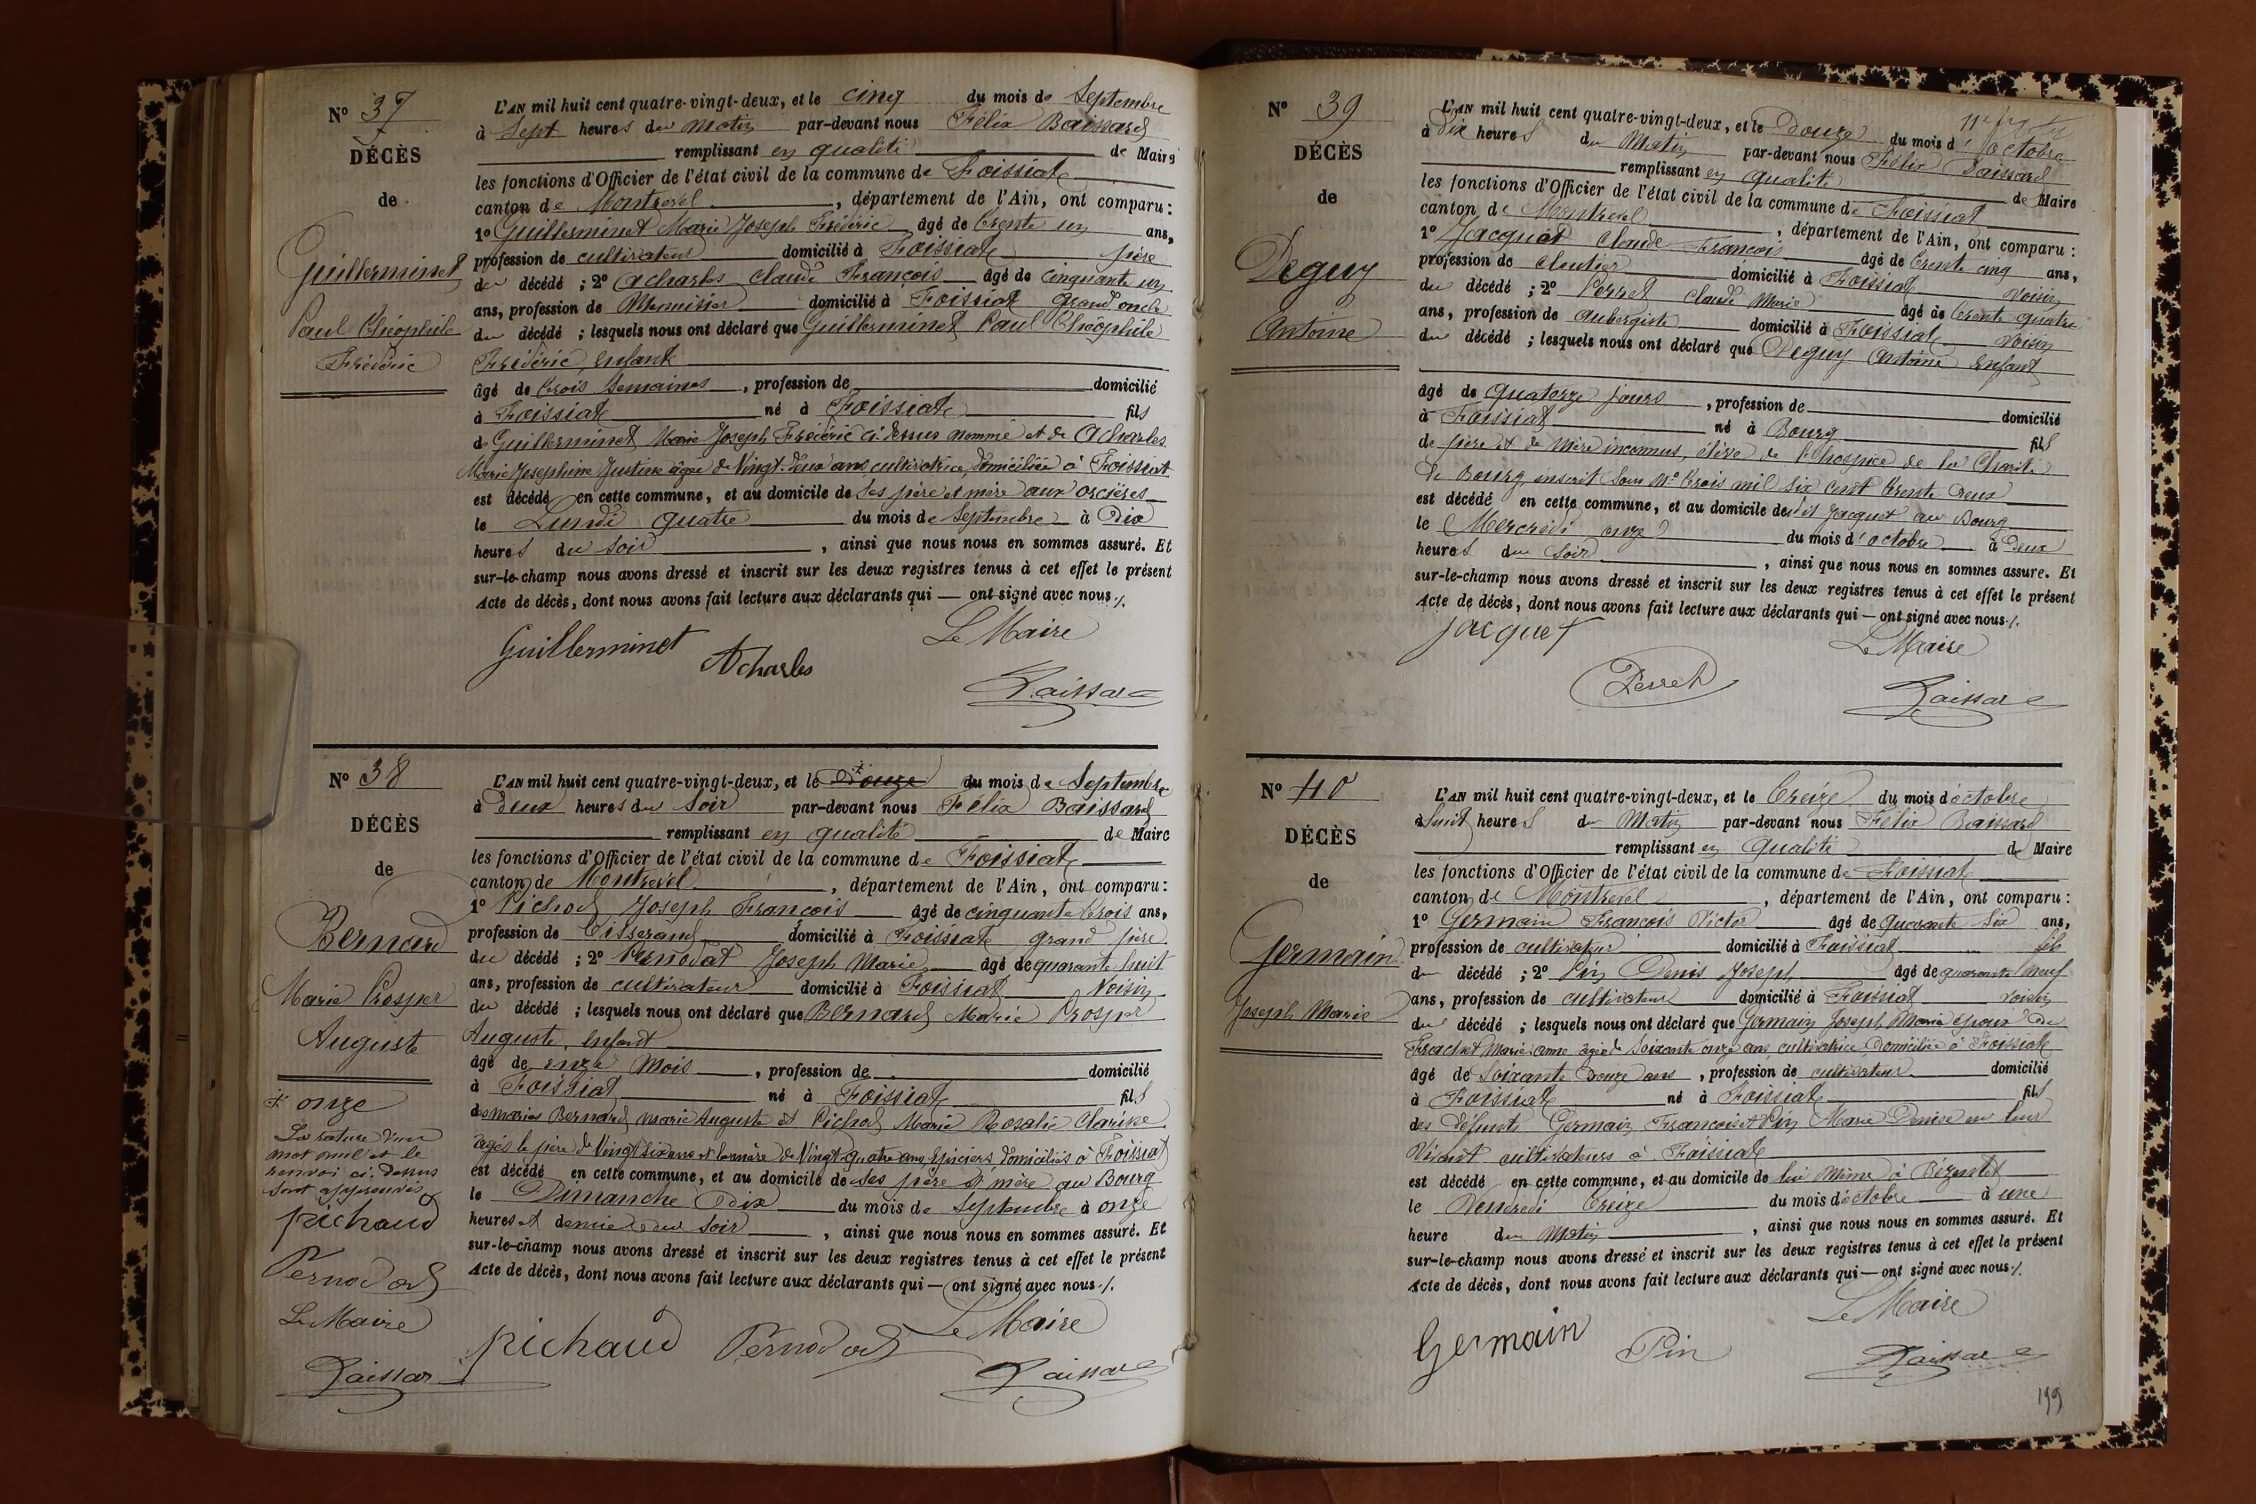 N° 37
DÉCÈS
de
Guillerminet
Paul Théophile
Frédéric
L'AN mil huit cent quatre-vingt-deux, et le cinq du mois de Septembre
à Sept heures du Matin par-devant nous Félix Baissard
remplissant en qualité de Maire
les fonctions d'Officier de l'état civil de la commune de Foissiat
canton de Montrevel, département de l'Ain, ont comparu :
1° Guillerminet Marie Joseph Frédéric âgé de trente un ans,
profession de cultivateur domicilié à Foissiat père
du décédé ; 2° Acharles Claude François âgé de cinquante un
ans, profession de Menuisier domicilié à Foissiat grand oncle
du décédé ; lesquels nous ont déclaré que Guillerminet Paul Théophile
Frédéric, enfant
âgé de trois semaines, profession de domicilié
à Foissiat né à Foissiat fils
de Guillerminet Marie Joseph Frédéric ci-dessus nommé et de Acharles
Marie Josephine Justine âgée de Vingt-deux ans, cultivatrice, domiciliée à Foissiat
est décédé en cette commune, et au domicile de ses père et mère aux orcières
le Lundi quatre du mois de Septembre à Dix
heures du soir, ainsi que nous nous en sommes assuré. Et
sur-le-champ nous avons dressé et inscrit sur les deux registres tenus à cet effet le présent
Acte de décès, dont nous avons fait lecture aux déclarants qui — ont signé avec nous ./.
Guillerminet Acharles Le Maire
Baissard
N° 38
DÉCÈS
de
Bernard
Marie Prosper
Auguste
+ onze
La rature d'un
mot nul et le
renvoi ci-dessus
sont approuvés
pichaud
Pernodat
Le Maire
Baissard
L'AN mil huit cent quatre-vingt-deux, et le Douze + du mois de Septembre
à Deux heures du soir par-devant nous Félix Baissard
remplissant en qualité de Maire
les fonctions d'Officier de l'état civil de la commune de Foissiat
canton de Montrevel, département de l'Ain, ont comparu :
1° Pichod Joseph François âgé de cinquante trois ans,
profession de Tisserand domicilié à Foissiat grand père
du décédé ; 2° Pernodat Joseph Marie âgé de quarante huit
ans, profession de cultivateur domicilié à Foissiat Voisin
du décédé ; lesquels nous ont déclaré que Bernard Marie Prosper
Auguste, enfant
âgé de onze mois, profession de domicilié
à Foissiat né à Foissiat fils
des mariés Bernard Marie Auguste et Pichod Marie Rosalie Clarisse
âgés le père de Vingt six ans et la mère de Vingt-quatre ans, épiciers, domiciliés à Foissiat
est décédé en cette commune, et au domicile de ses père et mère au Bourg
le Dimanche Dix du mois de Septembre à onze
heures et demie du soir, ainsi que nous nous en sommes assuré. Et
sur-le-champ nous avons dressé et inscrit sur les deux registres tenus à cet effet le présent
Acte de décès, dont nous avons fait lecture aux déclarants qui — ont signé avec nous ./.
pichaud Pernodat Le Maire
Baissard
N° 39
DÉCÈS
de
Deguy
Antoine
L'AN mil huit cent quatre-vingt-deux, et le Douze du mois d'octobre
à Dix heures du Matin par-devant nous Félix Baissard
remplissant en qualité de Maire
les fonctions d'Officier de l'état civil de la commune de Foissiat
canton de Montrevel, département de l'Ain, ont comparu :
1° Jacquet Claude François âgé de trente cinq ans,
profession de cloutier domicilié à Foissiat voisin
du décédé ; 2° Perret Claude Marie âgé de trente quatre
ans, profession de aubergiste domicilié à Foissiat Voisin
du décédé ; lesquels nous ont déclaré que Deguy Antoine enfant
âgé de quatorze jours, profession de domicilié
à Foissiat né à Bourg fils
de père et de mère inconnus, élève de l'hospice de la Charité
de Bourg, inscrit sous N° trois mil six cent trente Deux
est décédé en cette commune, et au domicile dudit Jacquet au Bourg
le Mercredi onze du mois d'octobre à Deux
heures du soir, ainsi que nous nous en sommes assuré. Et
sur-le-champ nous avons dressé et inscrit sur les deux registres tenus à cet effet le présent
Acte de décès, dont nous avons fait lecture aux déclarants qui — ont signé avec nous ./.
jacquet Le Maire
Perret Baissard
N° 40
DÉCÈS
de
Germain
Joseph Marie
L'AN mil huit cent quatre-vingt-deux, et le treize du mois d'octobre
à huit heures du Matin par-devant nous Félix Baissard
remplissant en qualité de Maire
les fonctions d'Officier de l'état civil de la commune de Foissiat
canton de Montrevel, département de l'Ain, ont comparu :
1° Germain François Victor âgé de quarante six ans,
profession de cultivateur domicilié à Foissiat fils
du décédé ; 2° Pin Denis Joseph âgé de quarante neuf
ans, profession de cultivateur domicilié à Foissiat voisin
du décédé ; lesquels nous ont déclaré que Germain Joseph Marie époux de
Frachet Marie anne âgée de soixante onze ans, cultivatrice, domiciliée à Foissiat
âgé de soixante douze ans, profession de cultivateur domicilié
à Foissiat né à Foissiat fils
des défunts Germain François et Pin Marie Denise en leur
Vivant cultivateurs à Foissiat
est décédé en cette commune, et au domicile de lui même à
le Vendredi treize du mois d'octobre à une
heure du Matin, ainsi que nous nous en sommes assuré. Et
sur-le-champ nous avons dressé et inscrit sur les deux registres tenus à cet effet le présent
Acte de décès, dont nous avons fait lecture aux déclarants qui — ont signé avec nous ./.
Germain Pin Le Maire
Baissard
199